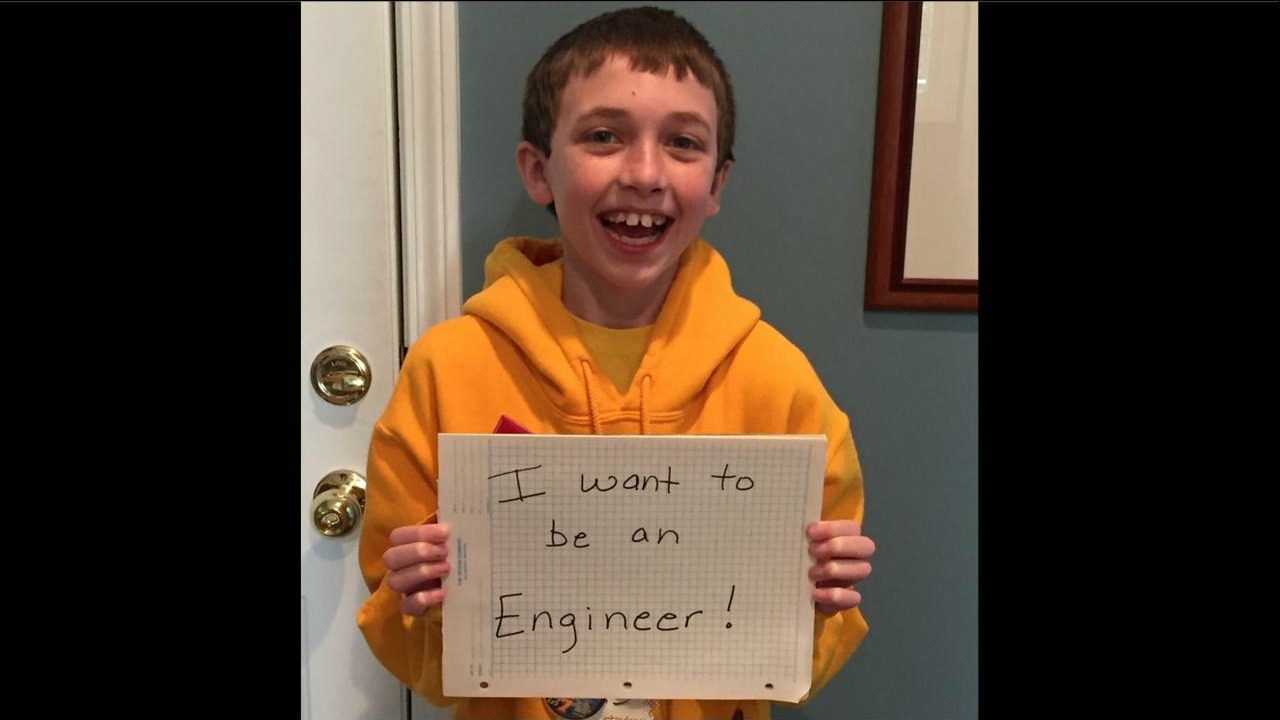 I want to
be an
Engineer!